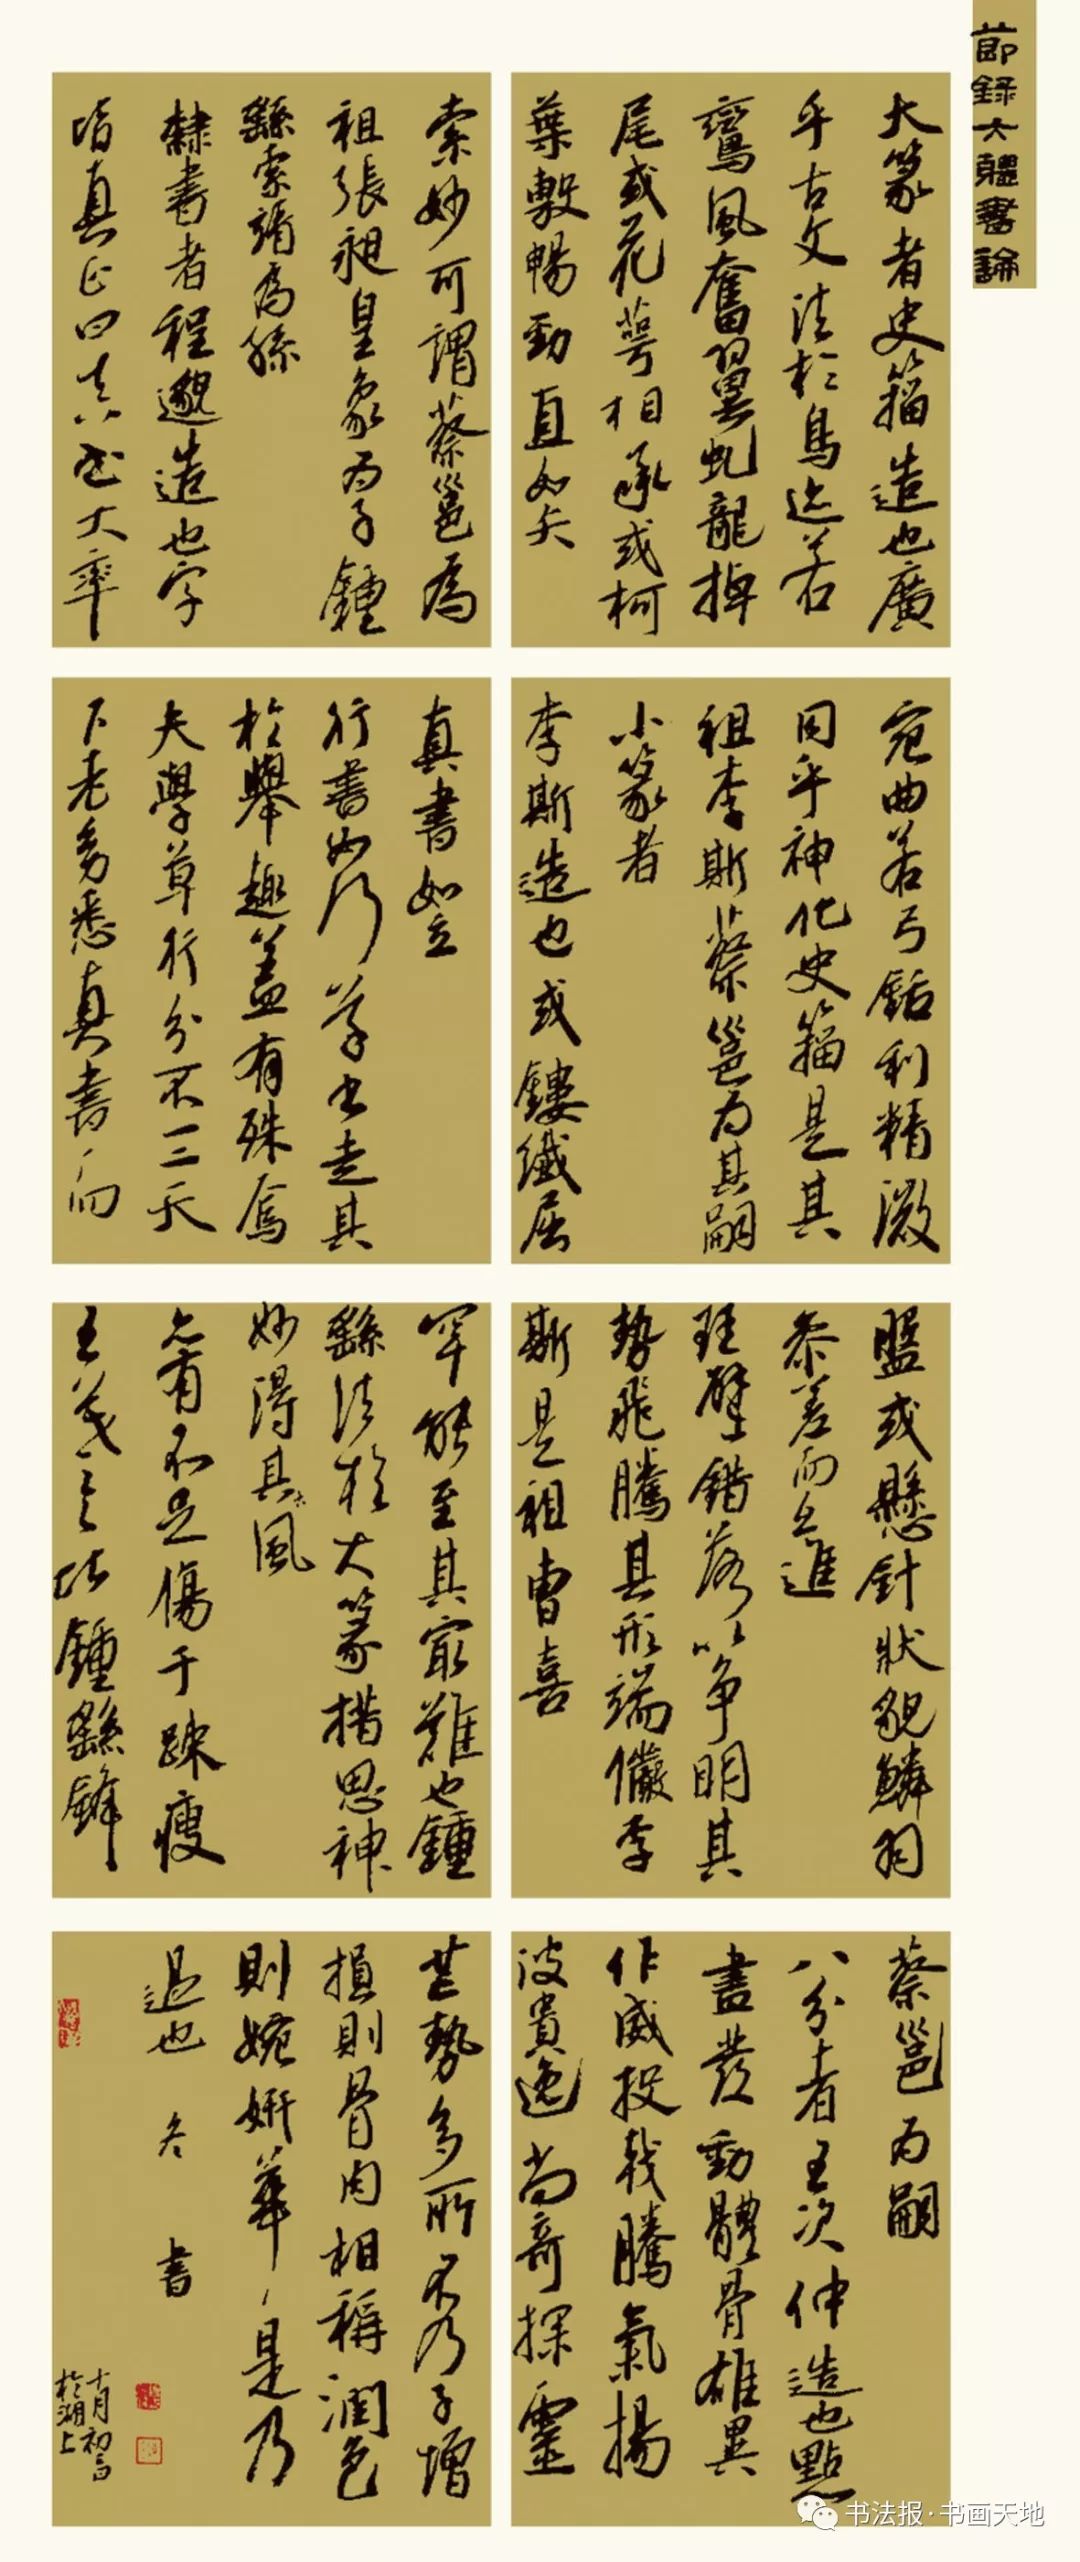 節錄大疆書論
大篆者史籀造也廣
乎古文法於鳥迹若
鸞鳳奮翼虬龍掉
尾或花萼相承或柯
葉敷暢勁直如矢
宛曲若弓銛利精微
同乎神化史籀是其
祖李斯蔡邕为其嗣
小篆者
李斯造也或鏤纖屈
盤或懸針狀貌鱗羽
参差而互進
珪璧錯落以争明其
勢飛騰其形端儼李
斯是祖曹喜
蔡邕为嗣
八分者王次仲造也點
畫發動體骨雄異
作威投戟騰氣揚
波貴逸尚奇探靈
索妙可謂蔡邕為
祖張昶皇象为子鍾
繇索靖為孫
隸書者程邈造也字
皆真正曰真書大率
真書如立
行書如行草書走其
於舉趣蓋有殊焉
夫學草行分不一二天
下老多悉真書而
罕能至其最難也鍾
繇法於大篆措思神
妙得其風
亦有不足傷于疎瘦
王羲之比鍾繇鋒
芒勢多所不及于增
損則骨肉相稱潤色
則婉妍華是乃
過也 冬 書
十月初三日
於湖上
书法报·书画天地